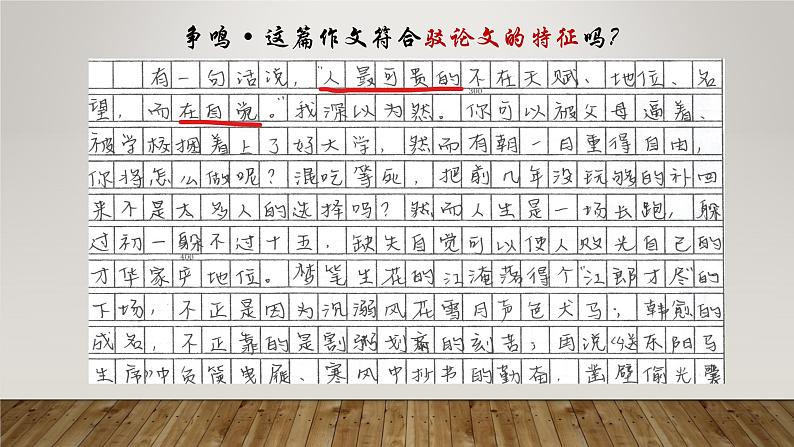 争鸣·这篇作文符合驳论文的特征吗?
有一句话说,“人最可贵的不在天赋、地位、名
300
望,而在自觉。”我深以为然。你可以被父母逼着、
被学校捆着上了好大学,然而有朝一日重得自由,
你将怎么做呢?混吃等死,把前几年没玩够的补回
来不是太多人的选择吗?然而人生是一场长跑,躲
过初一躲不过十五,缺失自觉可以使人败光自己的
400
才华家产地位。梦笔生花的江淹落得个“江郎才尽”的
下场,不正是因为沉溺风花雪月声色犬马;韩愈的
成名,不正靠的是割粥的刻苦;再说《送东阳马
生序》中负箧曳屣、寒风中抄书的勤奋,凿壁偷光